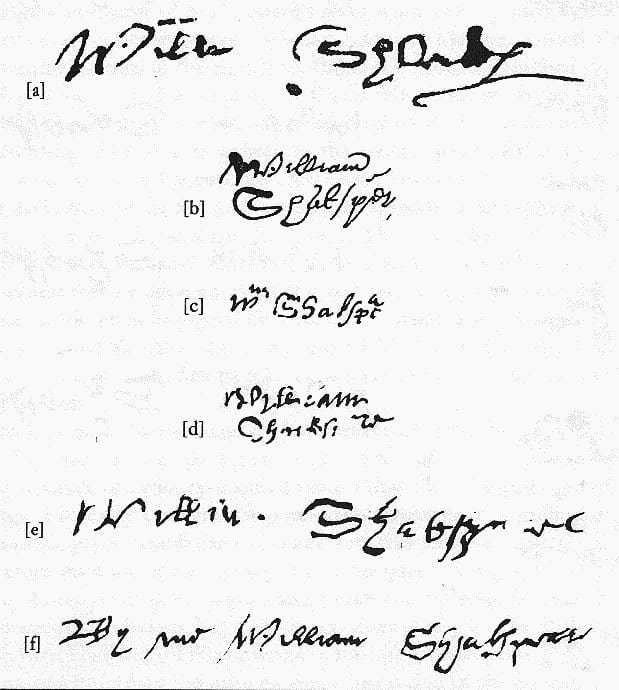 [a] Willm Shakp
William
[b] Shakspēr
[c] Wm Shakspe
William
[d] Shakspere
[e] Willm Shakspere
[f] By me William Shakspeare